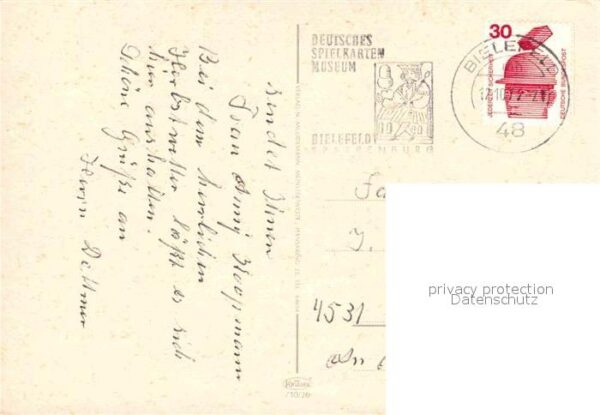 Bei dem herrlichen
Herbstwetter läßt es sich
hier aushalten.
Schöne Grüße an
Herrn Dettmer
sendet Ihnen
Frau Anny Koopmann
DEUTSCHES
SPIELKARTEN
MUSEUM
BIELEFELD
SPARRENBURG
30
DEUTSCHE BUNDESPOST
JEDERZEIT SICHERHEIT
BIELEFELD
48
4531
Krüger
710/26
privacy protection
Datenschutz